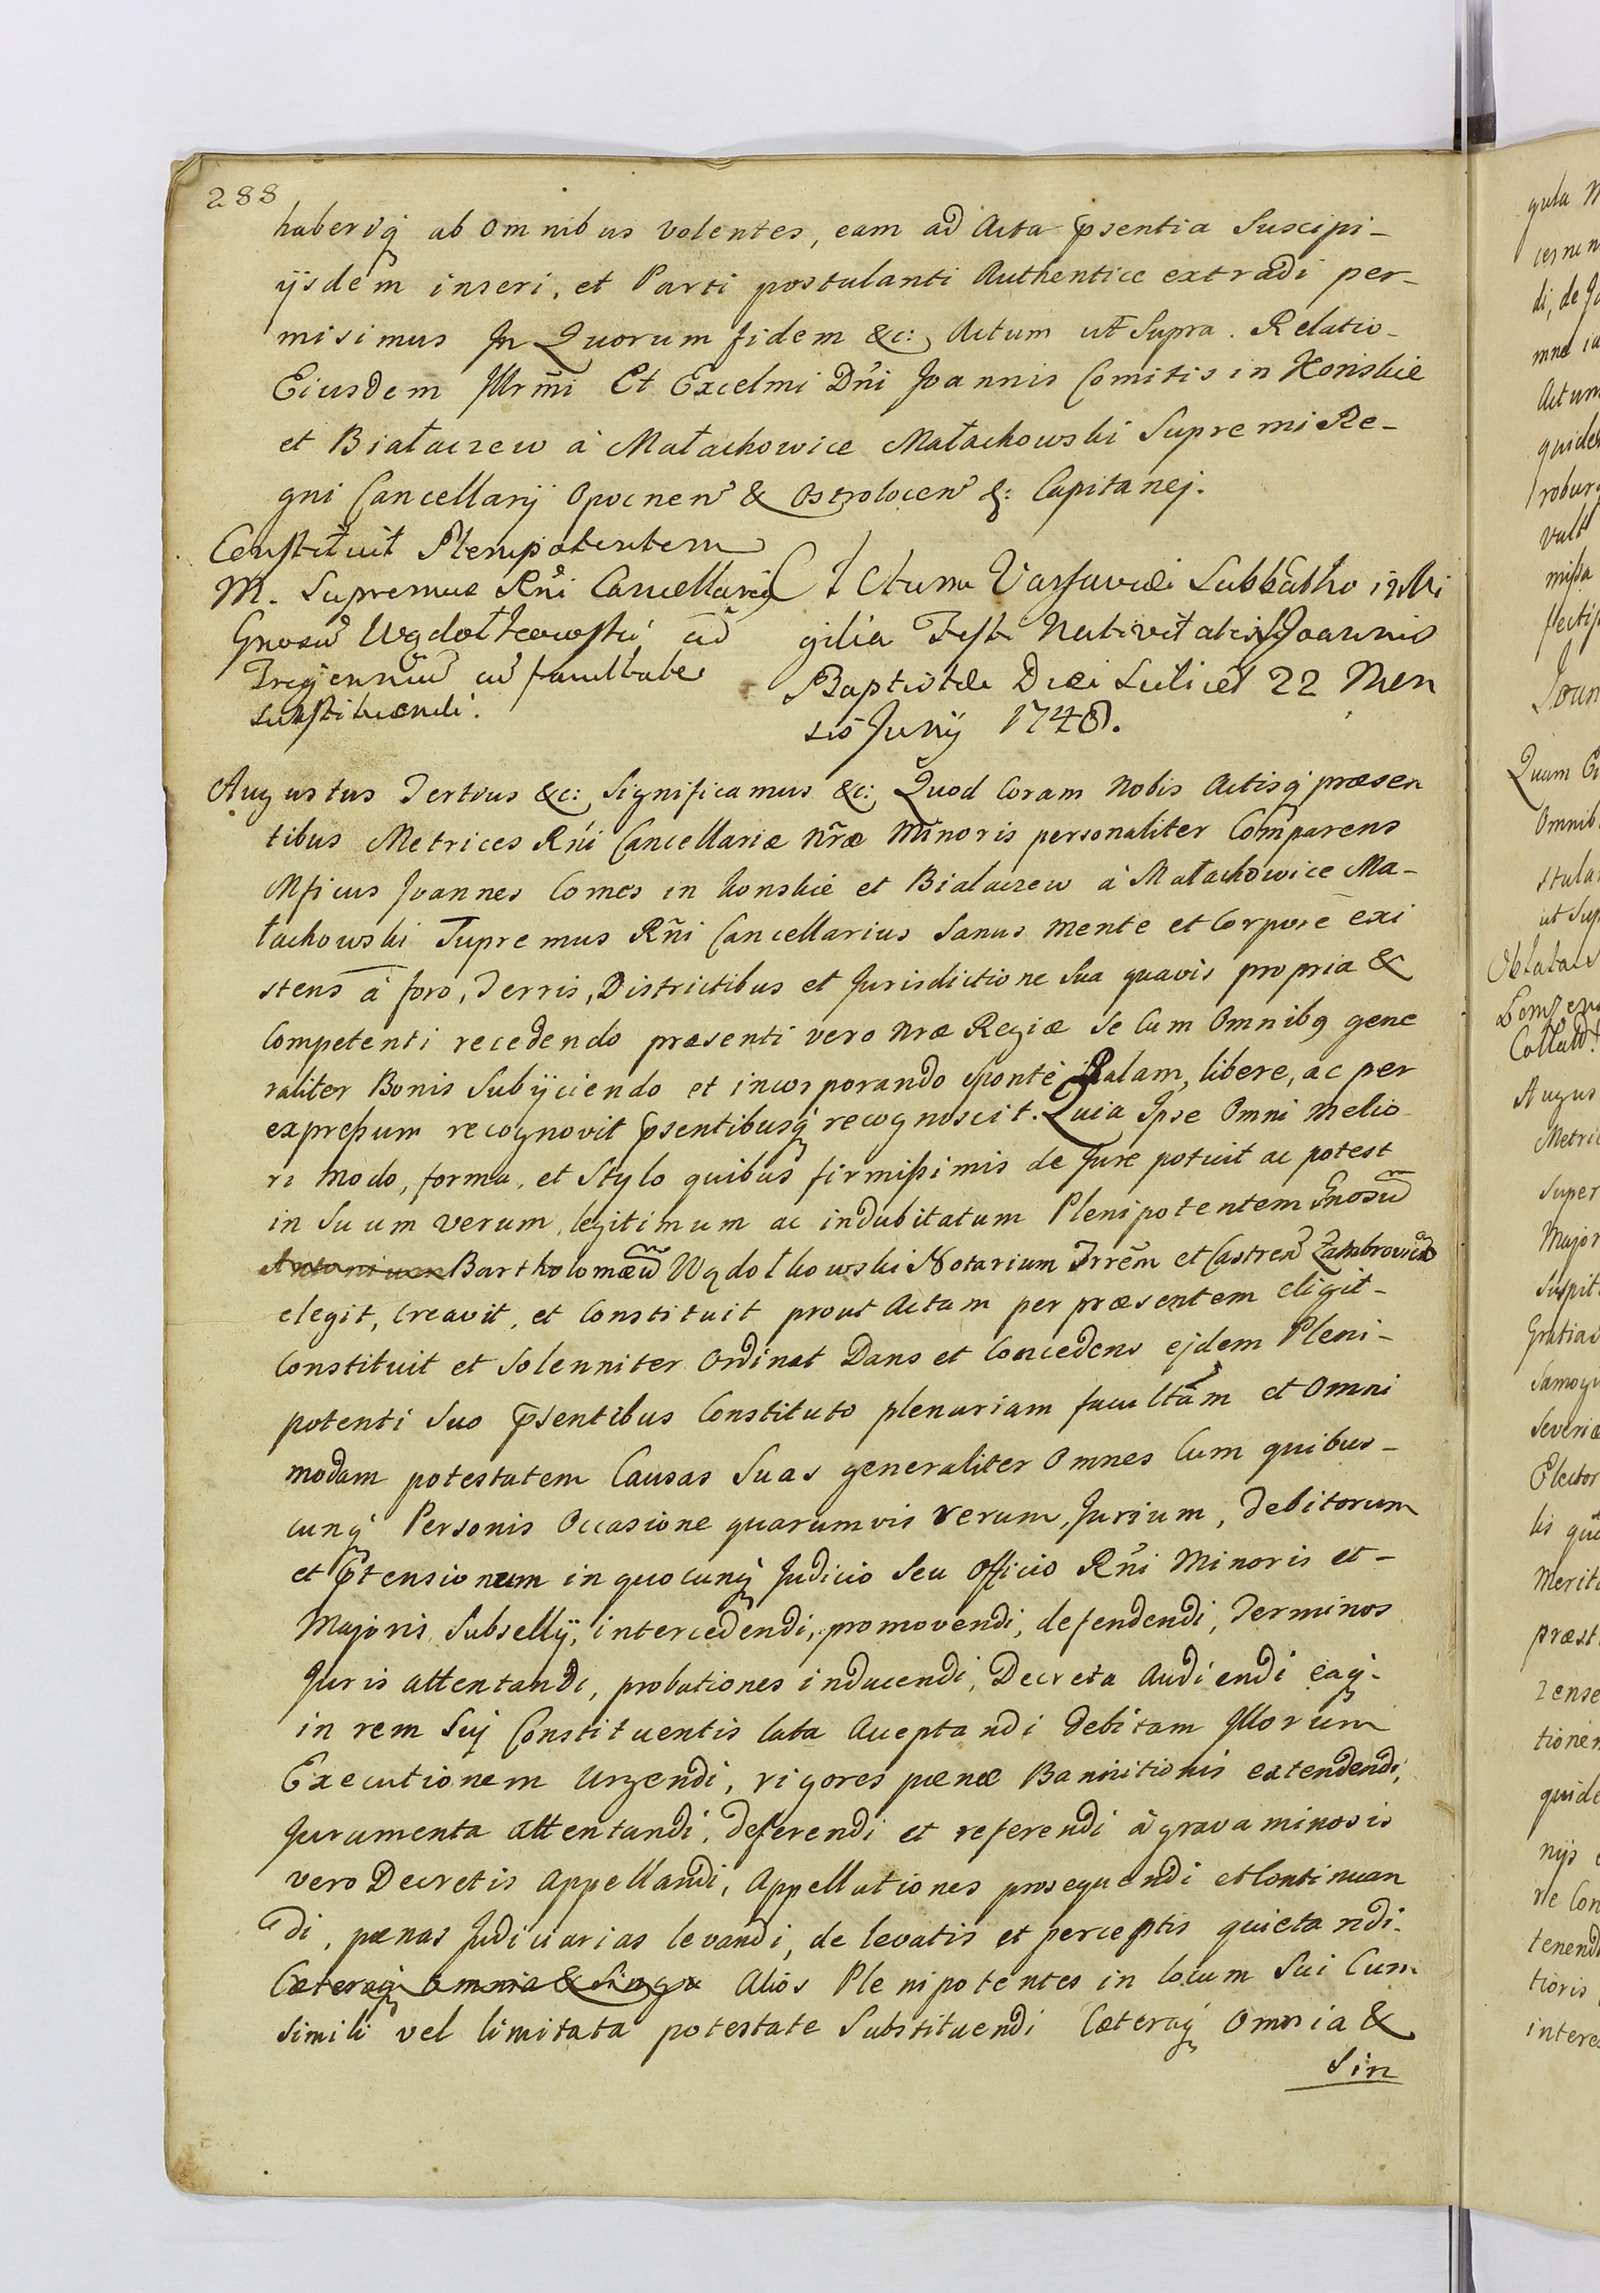 288
haberiq ab omnibus volentes, eam ad Acta psentia Suscipi-
ijsdem inseri, et Parti postulanti Authentice extradi per-
misimus In Quorum fidem &c: Actum ut Supra. Relatio-
Eiusdem Illrmi Et Excelmi Dni Joannis Comitis in Konskie
et Białaczew à Małachowice Małachowski Supremi Re-
gni Cancellarij Opocnen & Ostrolocen &: Capitanej.
Constituit Plenipotentem
M. Supremus Rni Cancellarig
Gnosu Wądołkowski ad
Trigennium cu facultate
substituendi.
Actum Varsaviæ Sabbatho in Vi
gilia Festi Nativitatis S Joannis
Baptistæ Diei Scilicet 22 Men
sis Junij 1748.
Augustus Tertius &c: Significamus &c: Quod Coram Nobis Actisq præsen
tibus Metrices Rni Cancellariæ nræ Minoris personaliter Comparens
Mficus Joannes Comes in Konskie et Białaczew à Małachowice Ma-
łachowski Supremus Rñi Cancellarius Sanus mente et Corpore exi
stens à foro, Terris, Districtibus et Jurisdictione Sua quavis propria &
Competenti recedendo præsenti vero nræ Regiæ Se Cum Omnibq gene
raliter Bonis Subijciendo et incorporando sponte Palam, libere, ac per
expreßum recognovit psentibusq recognoscit. Quia Ipse Omni melio
ri modo, forma, et Stylo quibus firmißimis de Jure potuit ac potest
in Suum verum legitimum ac indubitatum Plenipotentem Gnosum
Antonium Bartholomæu Wądołkowski Notarium Trrem et Castren Zambrovien
elegit, Creavit, et Constituit prout Actum per præsentem eligit-
Constituit et Solenniter Ordinat Dans et Concedens ejdem Pleni-
potenti Suo psentibus Constituto plenariam facultam et Omni
modam potestatem Causas Suas generaliter Omnes Cum quibus-
cunq Personis Occasione quarumvis rerum, Jurium, debitorum
et Ptensionum in quocunq Judicio Seu Officio Rni Minoris et-
Majoris Subsellij, intercedendi, promovendi, defendendi, Terminos
Juris attentandi, probationes inducendi, Decreta Audiendi eaq-
in rem Sui Constituentis lata Aceptandi debitam Illorum
Executionem Urgendi, rigores pænæ Bannitionis extendendi,
Juramenta attentandi, deferendi et referendi à gravaminosis
vero Decretis Appellandi, Appellationes prosequendi et Continuan
di, pænas Judiciarias levandi, de levatis et perceptis quietandi-
Cæteraq omnia & Singu Alios Plenipotentes in locum Sui Cum
Simili vel limitata potestate Substituendi Cæteraq Omnia &
Sin